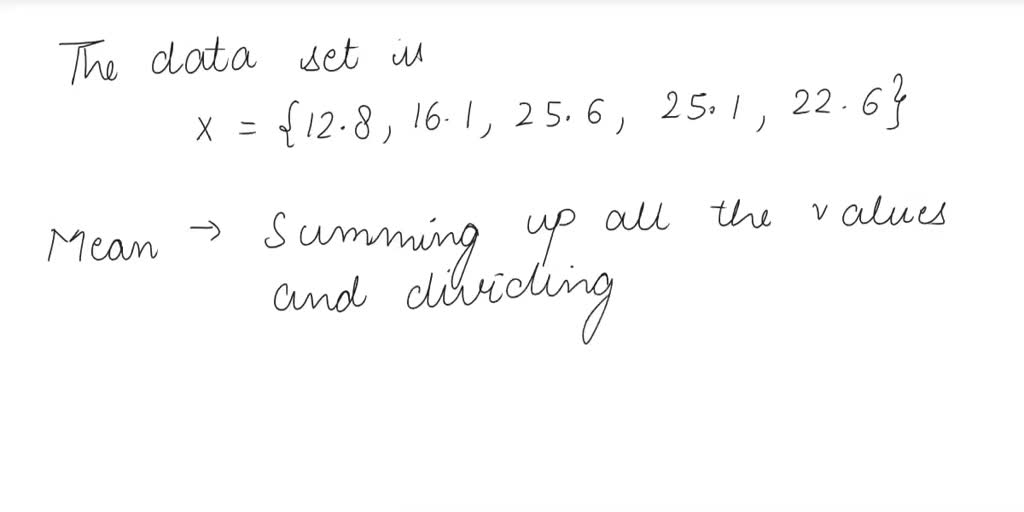 The data set is
x = {12.8, 16.1, 25.6, 25.1, 22.6}
Mean → Summing up all the values
and dividing